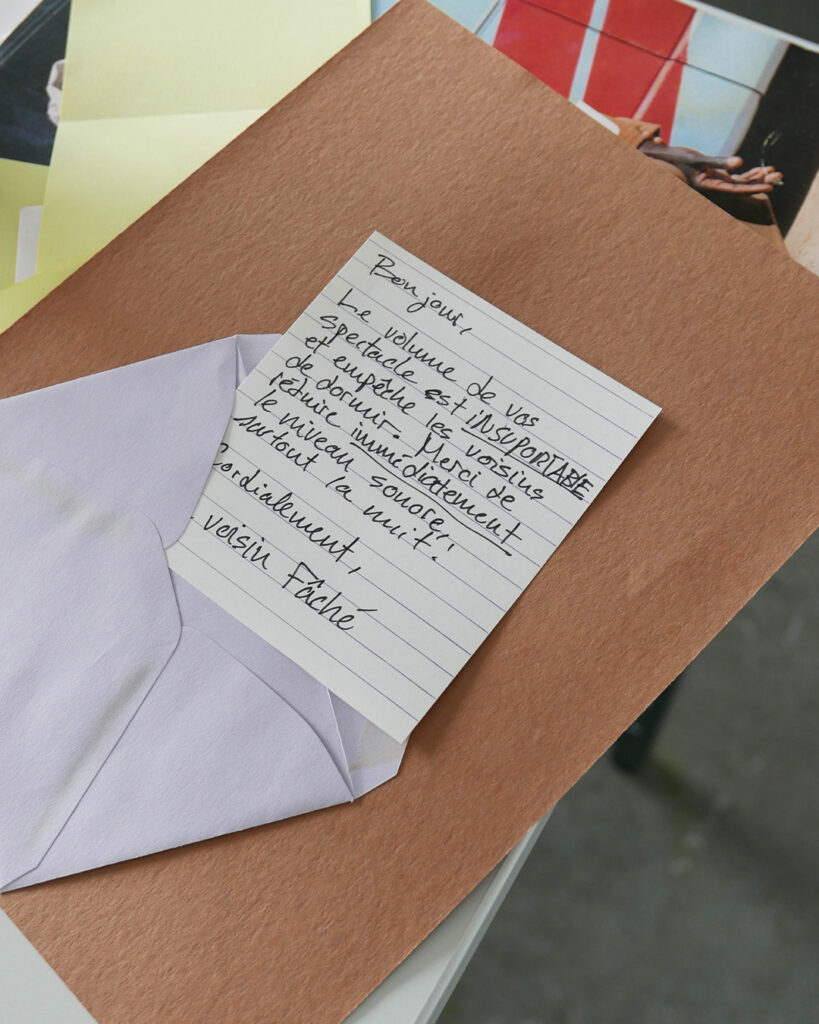 Bonjour,
Le volume de vos
spectacle est iNSUPORTABLE
et empêche les voisins
de dormir. Merci de
réduire immédiatement
le niveau sonore,
surtout la nuit!
Cordialement,
voisin Fâché